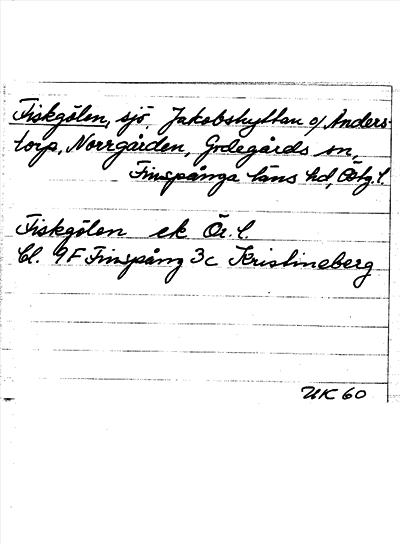 Fiskgölen, sjö, Jakobshyttan o/ Anders-
torp, Norrgården, Godegårds sn,
Finspånga läns hd, Östg. l.
Fiskgölen ek Ör. l.
Bl. 9F Finspång 3c Kristineberg
UK 60